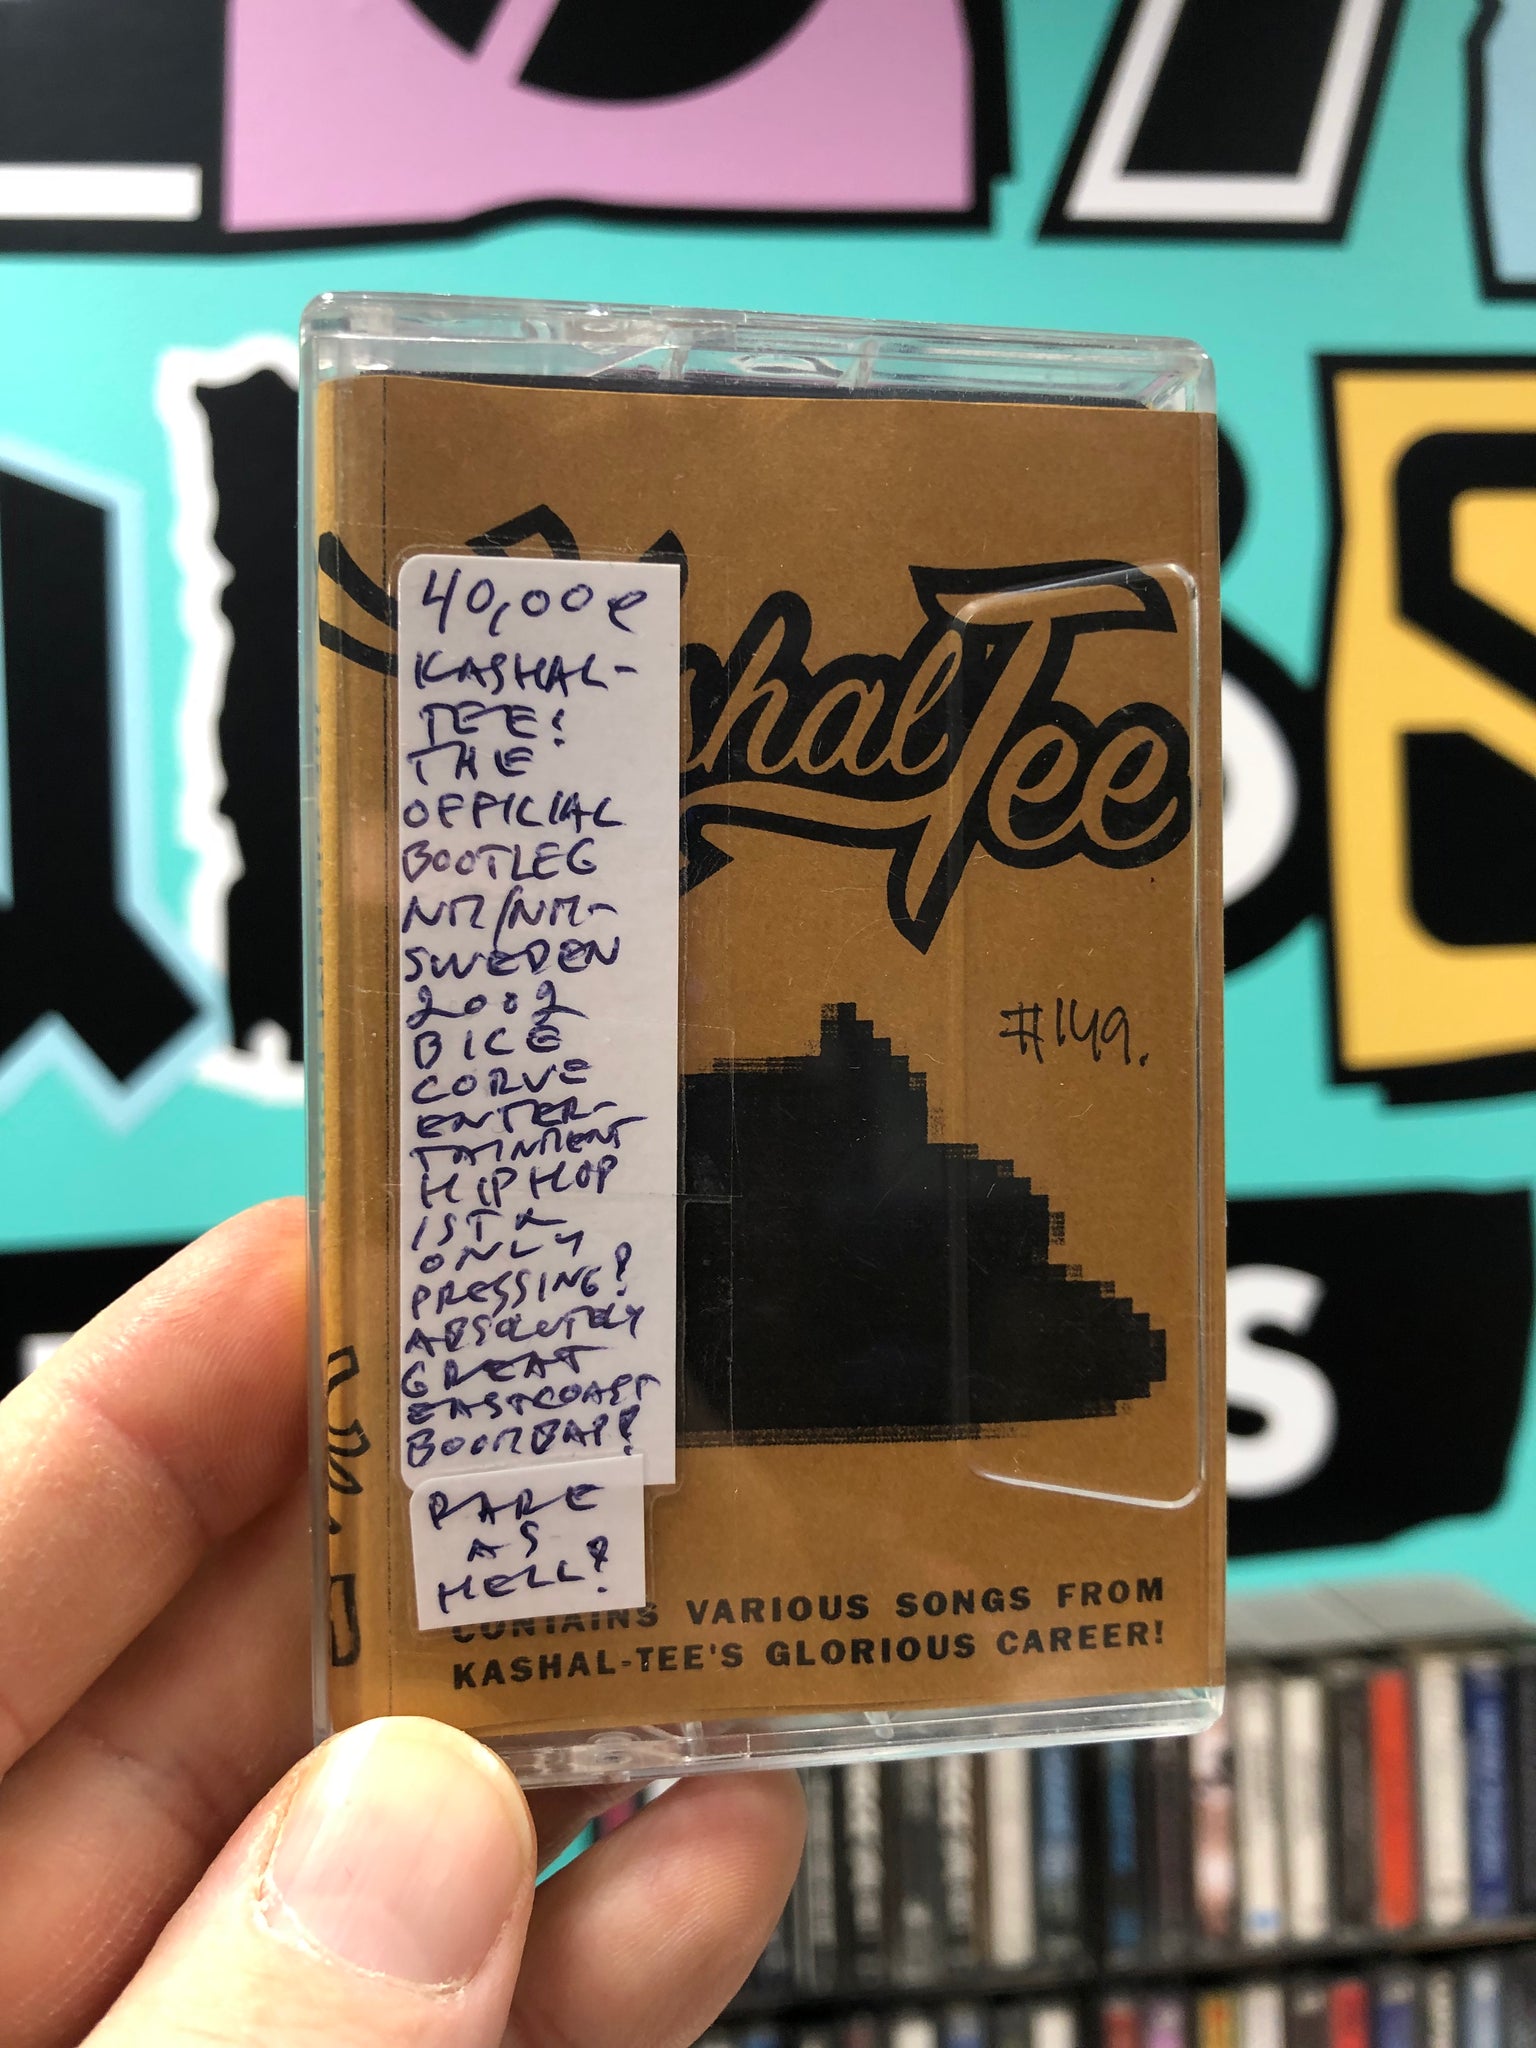 40,00e
KASHAL-
TEE:
THE
OFFICIAL
BOOTLEG
NM/NM-
SWEDEN
2002
BICE
CORVE
ENTER-
TAINMENT
HIPHOP
1ST &
ONLY
PRESSING!
ABSOLUTELY
GREAT
EASTCOAST
BOOMBAP!
RARE
AS
HELL!
Kashal Tee
#149.
CONTAINS VARIOUS SONGS FROM
KASHAL-TEE'S GLORIOUS CAREER!